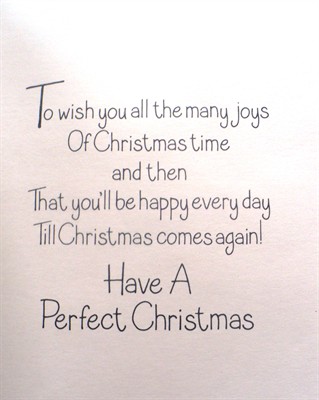 To wish you all the many joys
Of Christmas time
and then
That you'll be happy every day
Till Christmas comes again!
Have A
Perfect Christmas